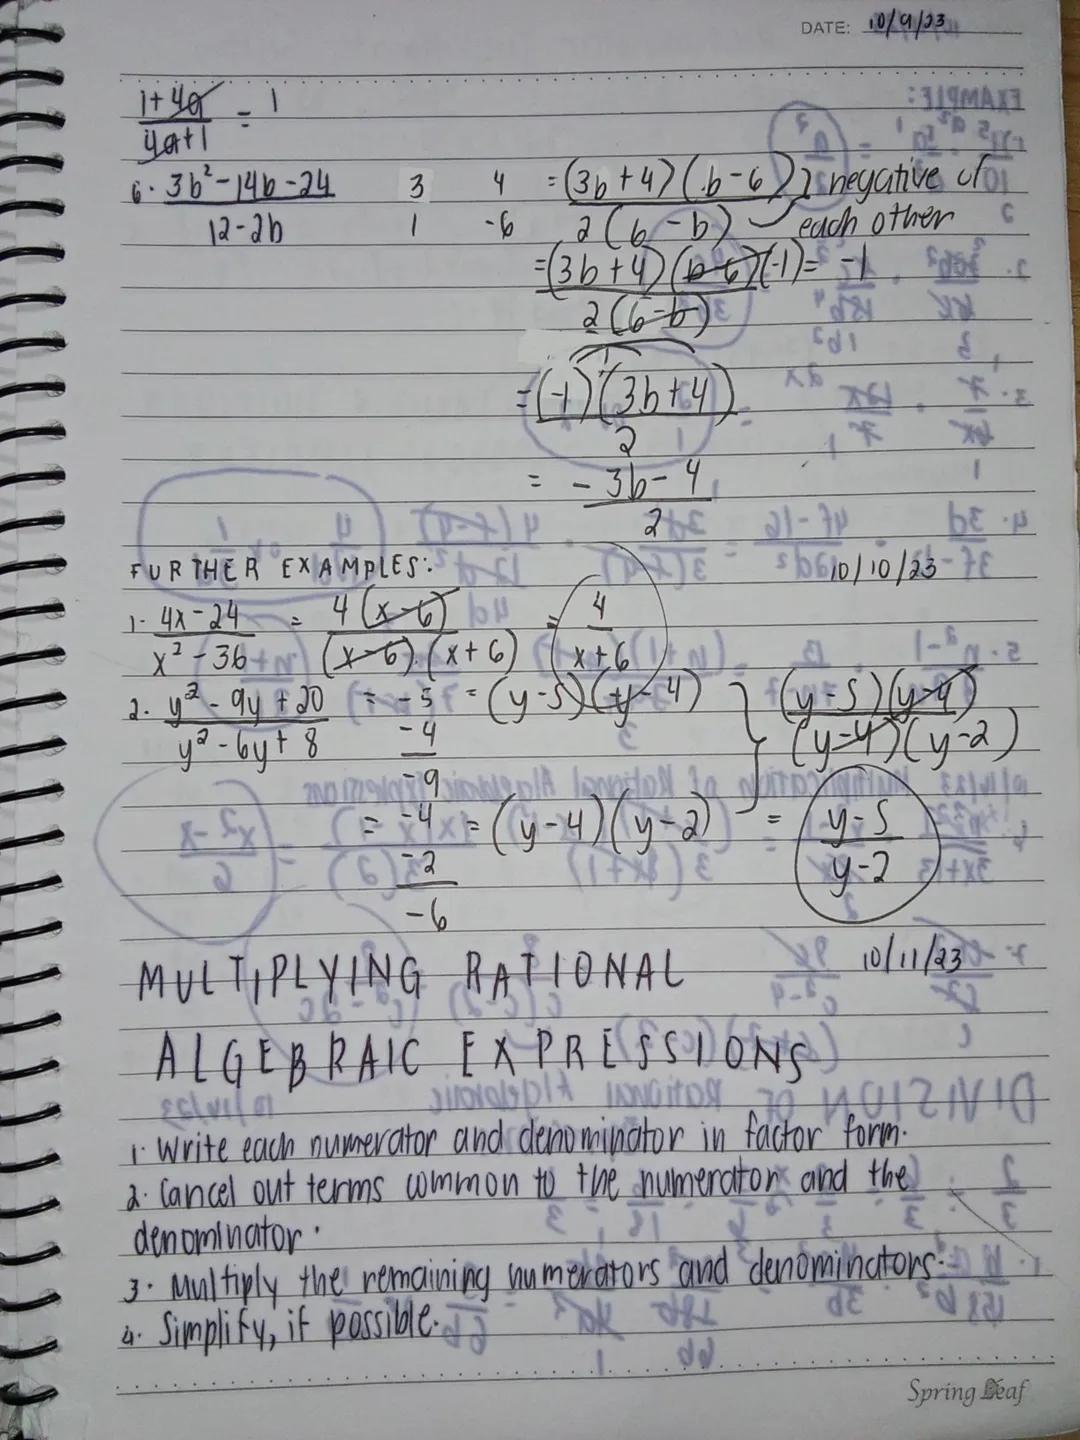 DATE: 10/9/23
1+4a/4a+1 = 1
6. 3b²-14b-24/12-2b 3 4 1 -6 = (3b+4)(b-6)/2(6-b) negative of each other
= (3b+4)(b-6)(-1)/2(6-b) = -1
= (-1)(3b+4)/2
= -3b-4/2
FURTHER EXAMPLES: 10/10/23
1. 4x-24/x²-36 = 4(x-6)/(x-6)(x+6) = 4/x+6
2. y²-9y+20/y²-6y+8 = -5 -4 -9 = (y-5)(y-4) (y-5)(y-4)/(y-4)(y-2)
= -4 -2 -6 = (y-4)(y-2) = y-5/y-2
MULTIPLYING RATIONAL 10/11/23
ALGEBRAIC EXPRESSIONS
1. Write each numerator and denominator in factor form.
2. Cancel out terms common to the numerator and the
denominator.
3. Multiply the remaining numerators and denominators.
4. Simplify, if possible.
Spring Leaf